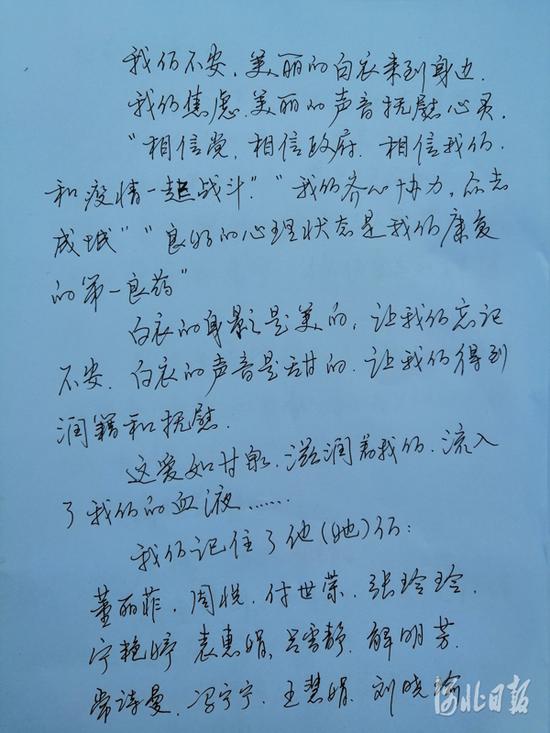 我们不安,美丽的白衣来到身边.
我们焦虑.美丽的声音抚慰心灵
"相信党,相信政府.相信我们.
和疫情一起战斗""我们齐心协力,众志
成城""良好的心理状态是我们康复
的第一良药"
白衣的身影是美的,让我们忘记
不安.白衣的声音是甜的.让我们得到
润籍和抚慰.
这爱如甘泉.滋润着我们.流入
了我们的血液……
我们记住了他(她)们:
董丽菲、周悦、付世荣、张玲玲、
宁艳婷 袁惠娟,吕雪静.解明芳.
常诗曼、冯宁宁、王慧娟、刘晓瑜
河北日报